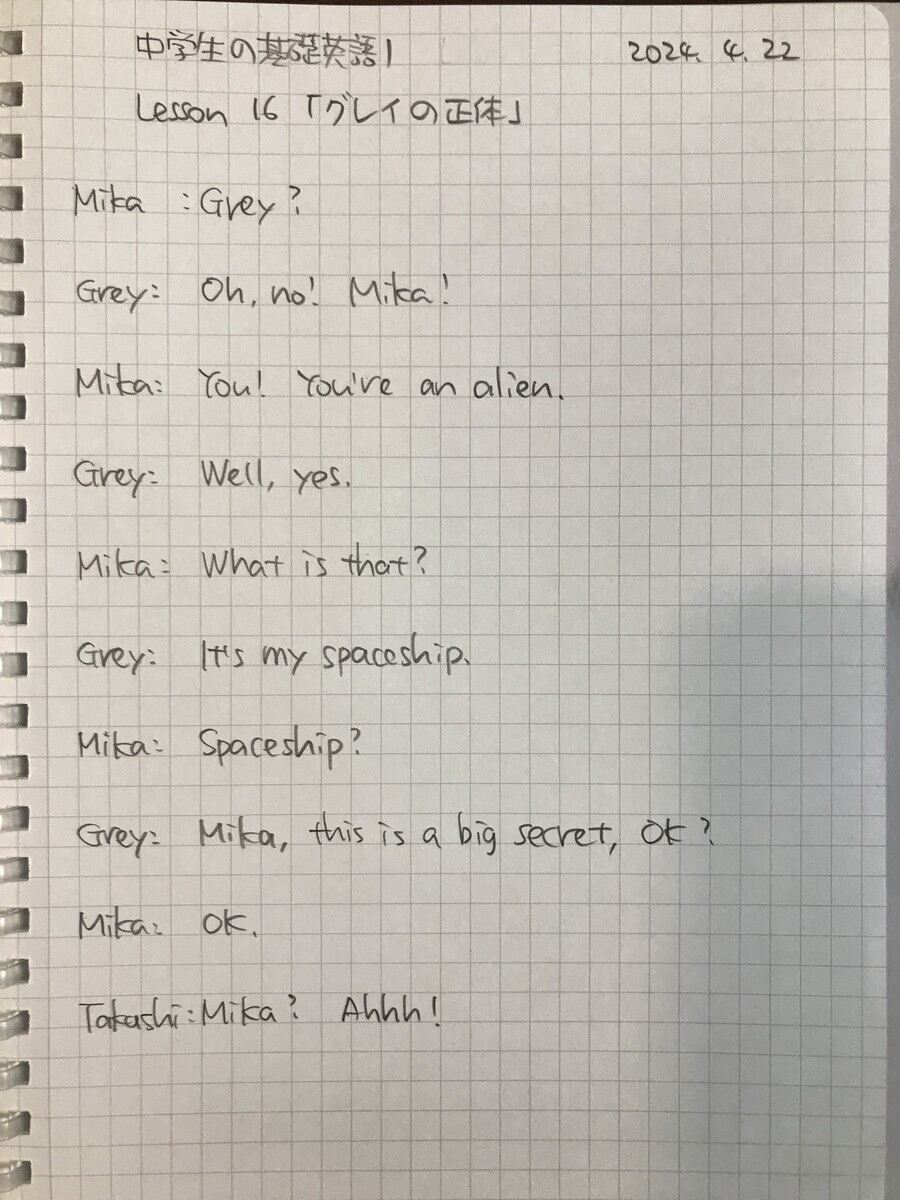 中学生の基礎英語1 2024. 4. 22
Lesson 16 「グレイの正体」
Mika : Grey?
Grey: Oh, no! Mika!
Mika: You! You're an alien.
Grey: Well, yes.
Mika: What is that?
Grey: It's my spaceship.
Mika: Spaceship?
Grey: Mika, this is a big secret, OK?
Mika: OK.
Takashi: Mika? Ahhh!